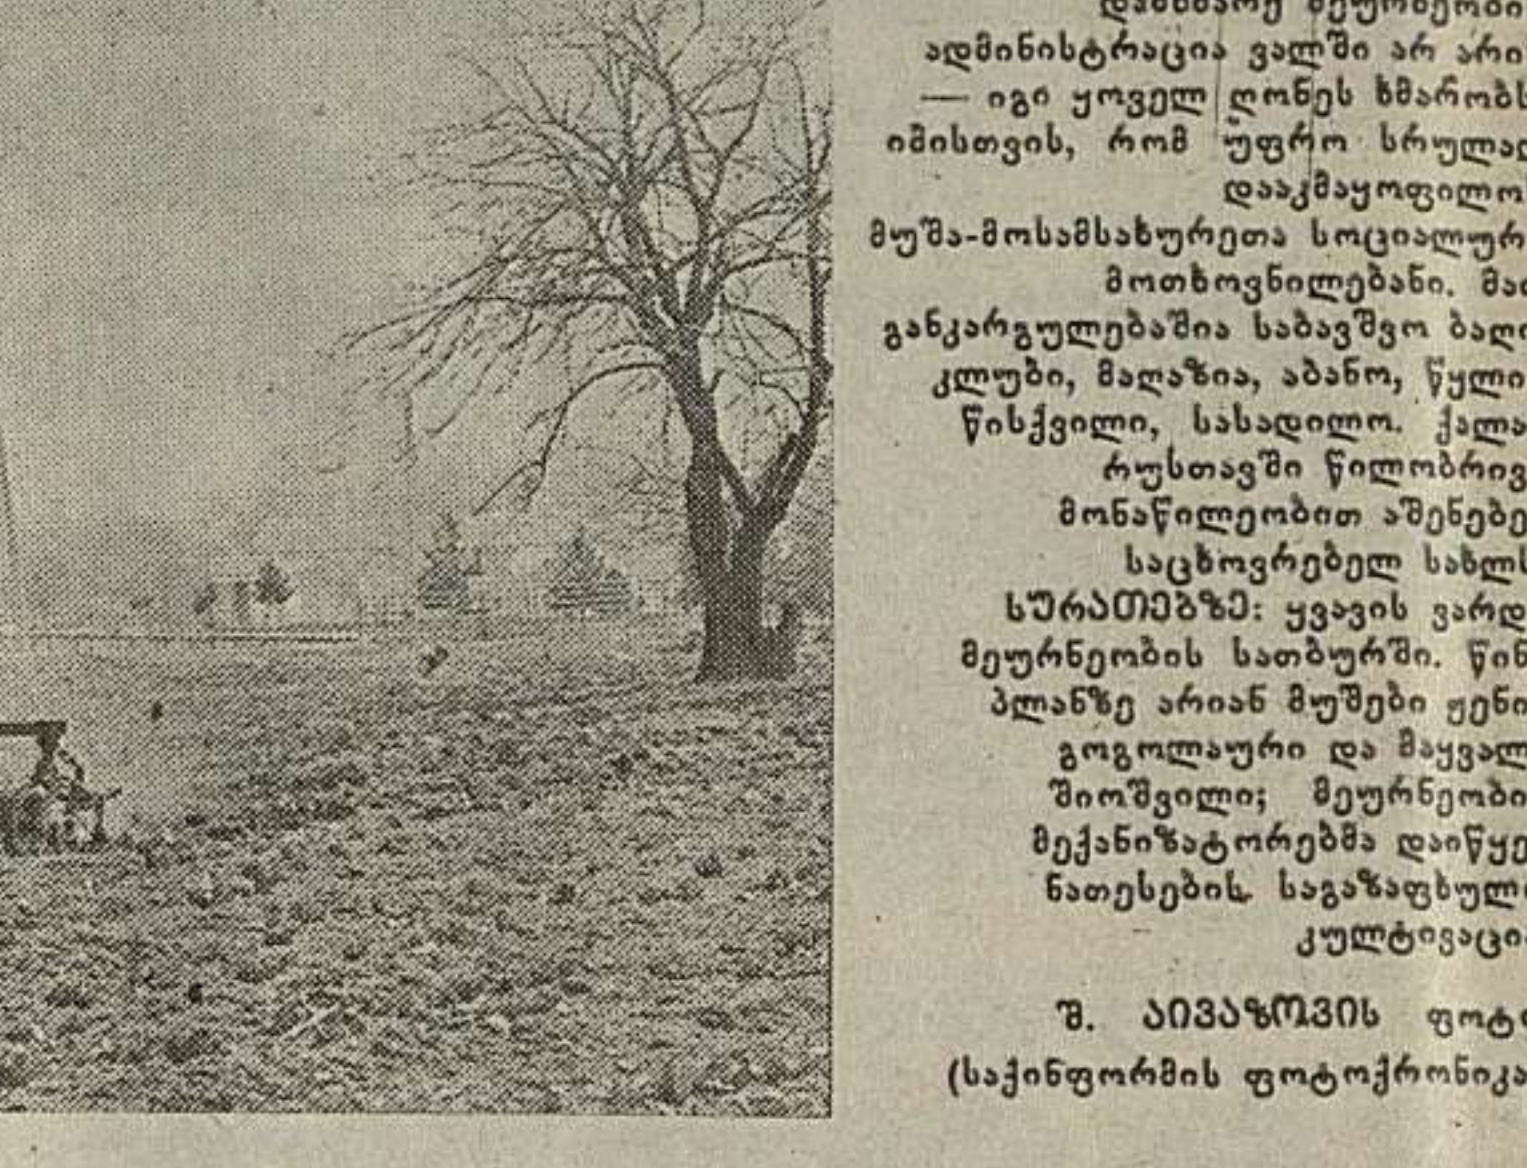 ადმინისტრაცია ვალში არ არი
— იგი ყოველ ღონეს ხმარობს
იმისთვის, რომ უფრო სრულად
დააკმაყოფილო
მუშა-მოსამსახურეთა სოციალურ
მოთხოვნილებანი. მათ
განკარგულებაშია საბავშვო ბაღი
კლუბი, მაღაზია, აბანო, წყლი
წისქვილი, სასადილო. ქალა
რუსთავში წილობრივ
მონაწილეობით აშენებე
საცხოვრებელ სახლს
სურათებზე: ყვავის ვარდ
მეურნეობის სათბურში. წინ
პლანზე არიან მუშები ჟენი
გოგოლაური და მაყვალ
შიოშვილი; მეურნეობი
მექანიზატორებმა დაიწყე
ნათესების საგაზაფხულო
კულტივაცი
შ. აივაზოვის ფოტო
(საქინფორმის ფოტოქრონიკა